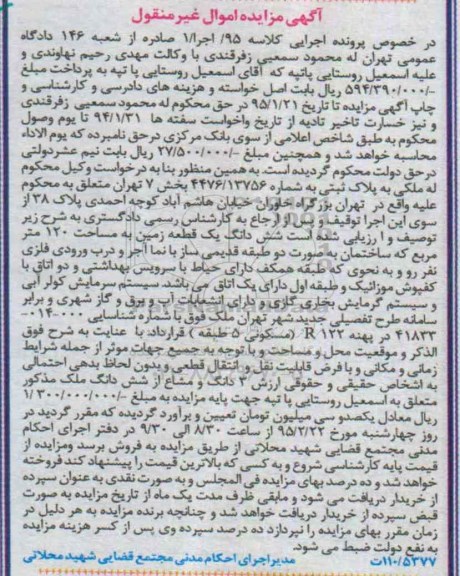 آگهی مزایده اموال غیر منقول
در خصوص پرونده اجرایی کلاسه ۹۵/ اجرا/۱ صادره از شعبه ۱۴۶ دادگاه
عمومی تهران له محمود سمعیی زفرقندی با وکالت مهدی رحیم نهاوندی و
علیه اسمعیل روستایی پاتپه که آقای اسمعیل روستایی پا تپه به پرداخت مبلغ
۵۹۴/۳۹۰/۰۰۰/- ریال بابت اصل خواسته و هزینه های دادرسی و کارشناسی و
چاپ آگهی مزایده تا تاریخ ۹۵/۱/۲۱ در حق محکوم له محمود سمعیی زفرقندی
و نیز خسارت تاخیر تادیه از تاریخ واخواست سفته ها ۹۴/۱/۳۱ تا یوم وصول
محکوم به طبق شاخص اعلامی از سوی بانک مرکزی در حق نامبرده که یوم الاداء
محاسبه خواهد شد و همچنین مبلغ ۲۷/۵۰۰/۰۰۰/- ریال بابت نیم عشر دولتی
در حق دولت محکوم گردیده است. به همین منظور بنا به درخواست وکیل محکوم
له ملکی به پلاک ثبتی به شماره ۴۴۷۶/۱۳۷۵۶ بخش ۷ تهران متعلق به محکوم
علیه واقع در تهران بزرگراه خاوران خیابان هاشم آباد کوچه احمدی پلاک ۳۸ از
سوی این اجرا توقیف و پس از ارجاع به کارشناس رسمی دادگستری به شرح زیر
توصیف و ارزیابی شده است شش دانگ یک قطعه زمین به مساحت ۱۲۰ متر
مربع که ساختمان به صورت دو طبقه قدیمی ساز با نما آجر و درب ورودی فلزی
نفر رو و به نحوی که طبقه همکف دارای حیاط با سرویس بهداشتی و دو اتاق با
کفپوش موزائیک و طبقه اول دارای یک اتاق می باشد. سیستم سرمایش کولر آبی
و سیستم گرمایش بخاری گازی و دارای انشعابات آب و برق و گاز شهری و برابر
سامانه طرح تفصیلی جدید شهر تهران ملک فوق با شماره شناسایی ۰۰۰-۰۱۴-
۴۱۸۳۳ در پهنه R ۱۲۲ (مسکونی ۵ طبقه ) قرارداد. با عنایت به شرح فوق
الذکر و موقعیت محل و مساحت و با توجه به جمیع جهات موثر از جمله شرایط
زمانی و مکانی و با فرض قابلیت نقل و انتقال قطعی و بدون لحاظ بدهی احتمالی
به اشخاص حقیقی و حقوقی ارزش ۳ دانگ و مشاع از شش دانگ ملک مذکور
متعلق به اسمعیل روستایی پا تپه جهت پایه مزایده به مبلغ ۱/۳۰۰/۰۰۰/۰۰۰/-
ریال معادل یکصدو سی میلیون تومان تعیین و برآورد گردیده که مقرر گردید در
روز چهارشنبه مورخ ۹۵/۲/۲۲ از ساعت ۸/۳۰ الی ۹/۳۰ در دفتر اجرای احکام
مدنی مجتمع قضایی شهید محلاتی از طریق مزایده به فروش برسد ومزایده از
قیمت پایه کارشناسی شروع و به کسی که بالاترین قیمت را پیشنهاد کند فروخته
خواهد شد و ده درصد بهای مزایده فی المجلس و به صورت نقدی به عنوان سپرده
از خریدار دریافت می شود و مابقی ظرف مدت یک ماه از تاریخ مزایده به صورت
قبض سپرده از خریدار دریافت خواهد شد و چنانچه برنده مزایده به هر دلیل در
زمان مقرر بهای مزایده را نپردازد ده درصد سپرده وی پس از کسر هزینه مزایده
به نفع دولت ضبط می شود.
۱۱۰/۵۳۷۷ت مدیر اجرای احکام مدنی مجتمع قضایی شهید محلاتی